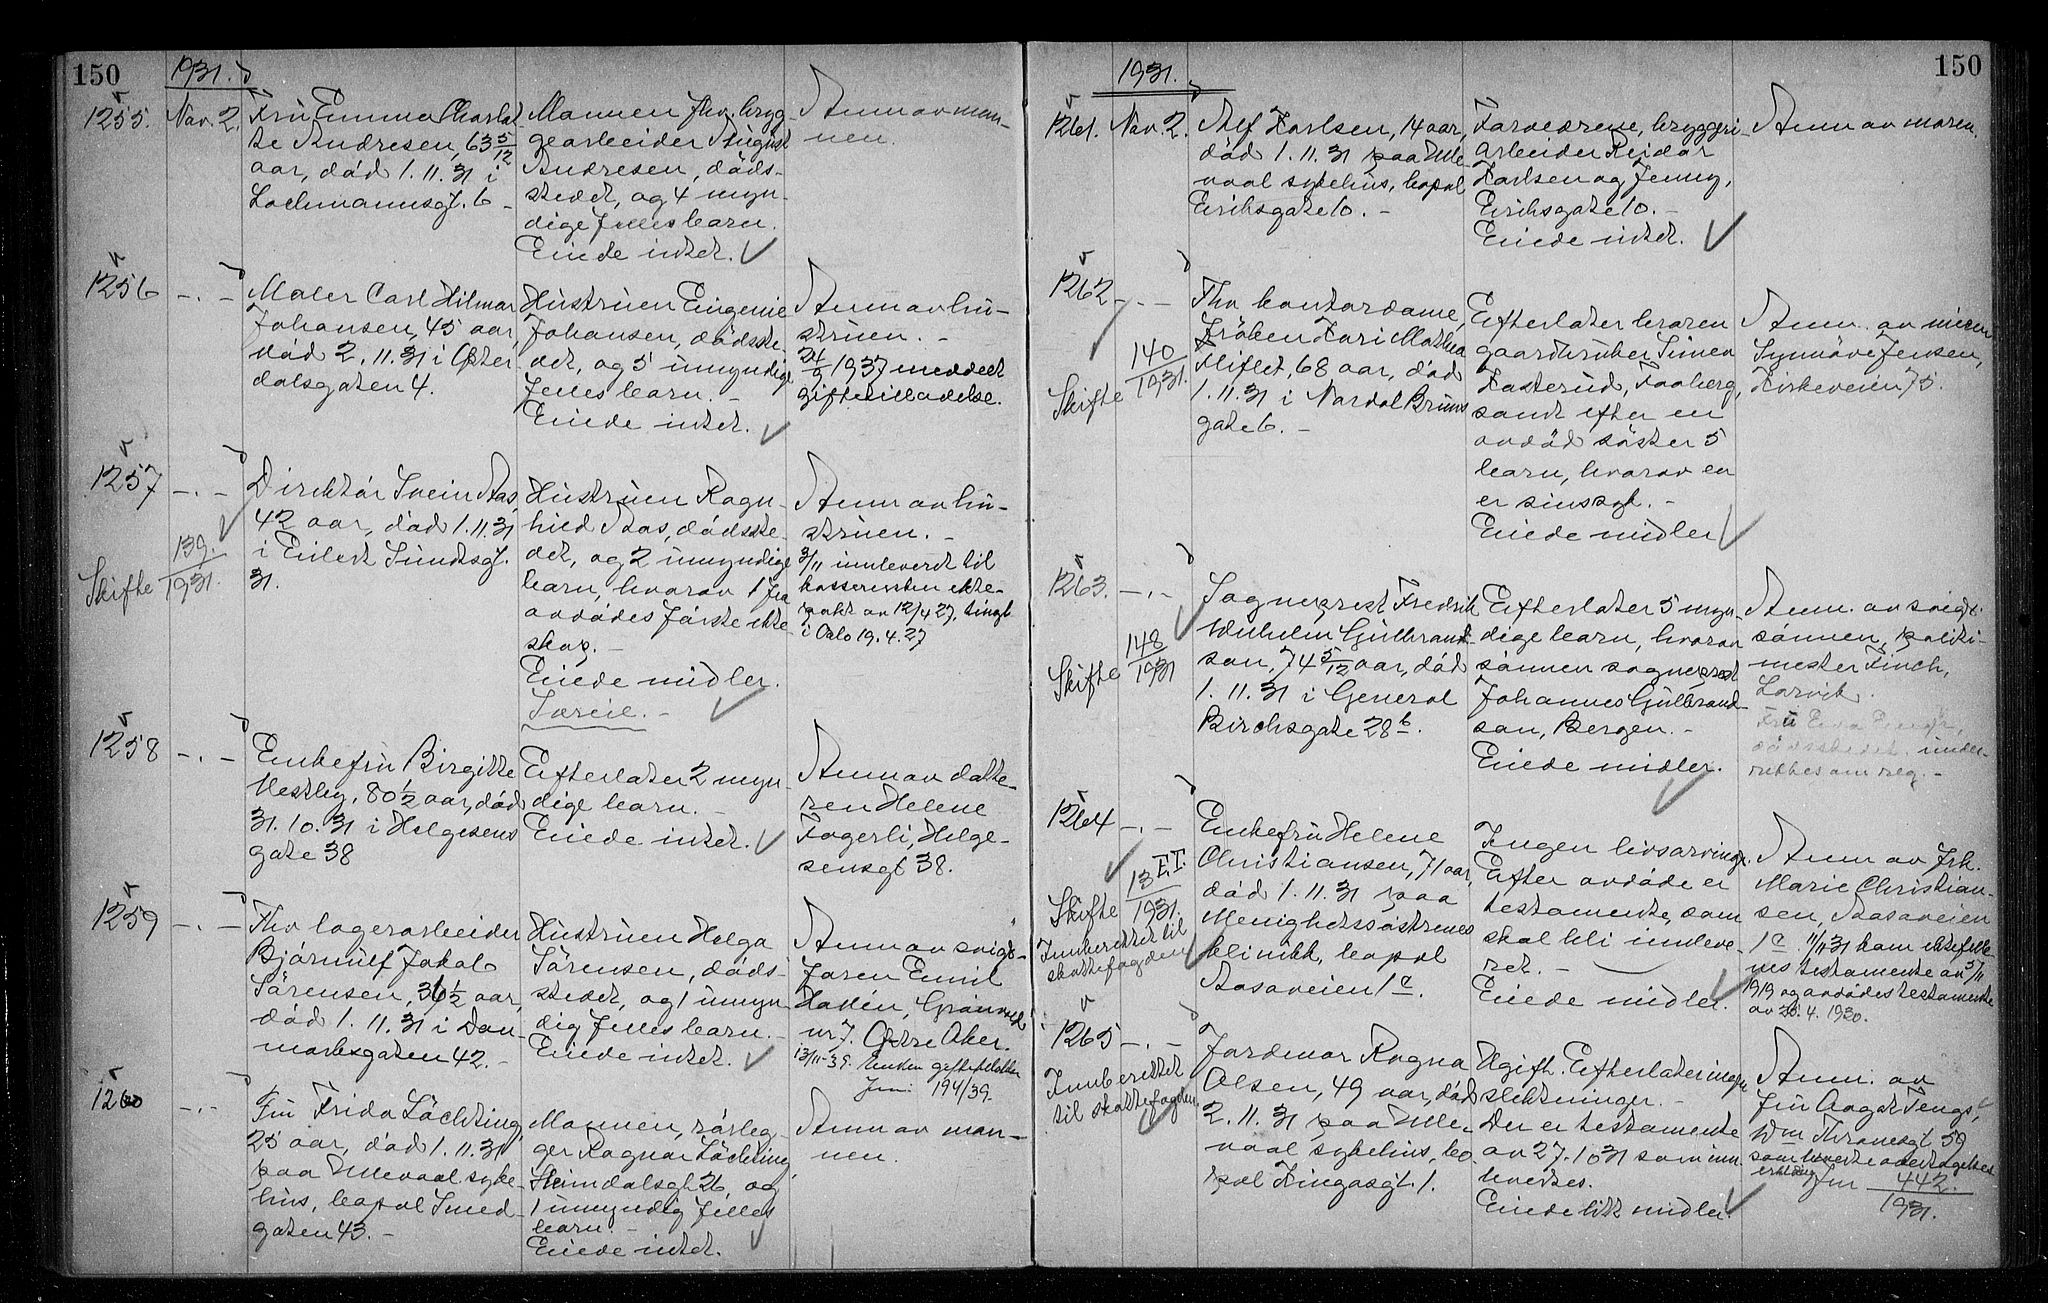 150
1931.
1255. Nov. 2.
Fru Emma Charlot-
te Andresen, 63 5/12
aar, död 1.11.31 i
Lochmannsgt. 6 -
Mannen fhv. bryg-
gearbeider August
Andresen, döds-
stedet, og 4 myn-
dige felles barn.
Eiede intet.
Anm av man-
nen.
1256 -.-
Maler Carl Hilmar
Johansen, 45 aar,
död 2.11.31 i Öster
dalsgaten 4.
Hustruen Eugenie
Johansen, dödsste-
det, og 5 umyndige
felles barn. -
Eiede intet.
Anm av hu-
struen. -
24/9 1937 meddelt
giftetilladelse.
1257 -.-
Skifte 139./1931.
Direktör Svein Aas,
42 aar, död 1.11.31
i Eilert Sundtsgt.
31.
Hustruen Ragn-
hild Aas, dödsste-
det, og 2 umyndige
barn, hvorav 1 fra
avdödes förste ekte-
skap. -
Eiede midler.
Anm av hu-
struen. -
3/11 innlevert til
kassereren ekte-
pakt av 12/4 27, tingl.
i Oslo 19.4.27
1258 -.-
Enkefru Birgitte
Vestby, 80 1/2 aar, död
31.10.31 i Helgesens
gate 38
Efterlater 2 myn-
dige barn. -
Eiede intet.
Anm av datte-
ren Helene
Fagerli, Helge-
sensgt 38.
1259 -.-
Fhv lagerarbeider
Björnulf Jakob
Sörensen, 36 1/2 aar,
död 1.11.31 i Dan-
marksgaten 42. -
Hustruen Helga
Sörensen, döds-
stedet, og 1 umyn-
dig felles barn. -
Eiede intet.
Anm av svige-
faren Emil
nr 7. Östre Aker.
13/11-39. Enken
194/39.
1260 -.-
Fru Frida Löchting,
25 aar, död 1.11.31
paa Ullevaal syke-
hus, bopæl Smed-
gaten 43. -
Mannen, rörleg-
ger Ragnar Löchting,
Heimdalsgt 26, og
1 umyndig felles
barn. -
Eiede intet.
Anm av man-
nen.
150
1931.
1261. Nov. 2.
Alf Karlsen, 14 aar,
död 1.11.31 paa Ulle-
vaal sykehus, bopæl
Eiriksgate 10. -
Forældrene, bryggeri-
arbeider Reidar
Karlsen og Jenny,
Eiriksgate 10. -
Eiede intet.
Anm av moren.
1262 -.-
Skifte 140/1931.
Fhv kontordame,
Fröken Kari Mathea
Hiflet, 68 aar, död
1.11.31 i Nordal Bruns
gate 6. -
Efterlater broren
gaardbruker Simen
Kasterud, Faaberg,
samt efter en
avdöd söster 5
barn, hvorav en
er sinssyk. -
Eiede midler
Anm. av niesen
Synnöve Jensen,
Kirkeveien 75.
1263. -.-
Skifte 148/1931
Sogneprest Fredrik
Wilhelm Gulbrand-
son, 74 5/12 aar, död
1.11.31 i General
Birchsgate 28 b.
Efterlater 5 myn-
dige barn, hvorav
sönnen sogneprest
Johannes Gulbrand-
son, Bergen. -
Eiede midler.
Anm. av svige-
sönnen, politi-
mester Finch,
Larvik.
Fru Eva
dödsstedet, under-
rettes om reg. -
1264 -.-
Skifte 13 E.T./1931.
Innberettet til
skattefogden
Enkefru Helene
Christiansen, 71 aar,
död 1.11.31 paa
Menighetssöstrenes
klinikk, bopæl
Aasaveien 1 c.
Ingen livsarvinger.
Efter avdöde er
testamente, som
skal bli innleve-
ret. -
Eiede midler.
Anm av frk.
Marie Christian-
sen, Aasaveien
1 c. 11/11 31 kom ektefelle-
nes testamente av 5/11
1919 og avdödes testamente
av 28.4.1930.
1265 -.-
Innberettet
til skattefogden.
Jordmor Ragna
Olsen, 49 aar, död
2.11.31 paa Ulle-
vaal sykehus, bo-
pæl Kingosgt. 1.
Ugift. Efterlater ingen
slektninger. -
Der er testamente
av 27.10 31 som inn-
leveres.
Eiede litt midler.
Anm. av
fru Aagot Tengs,
Wm Thranesgt 59
som leverte overtagelses
erklæring fm 442./1931.